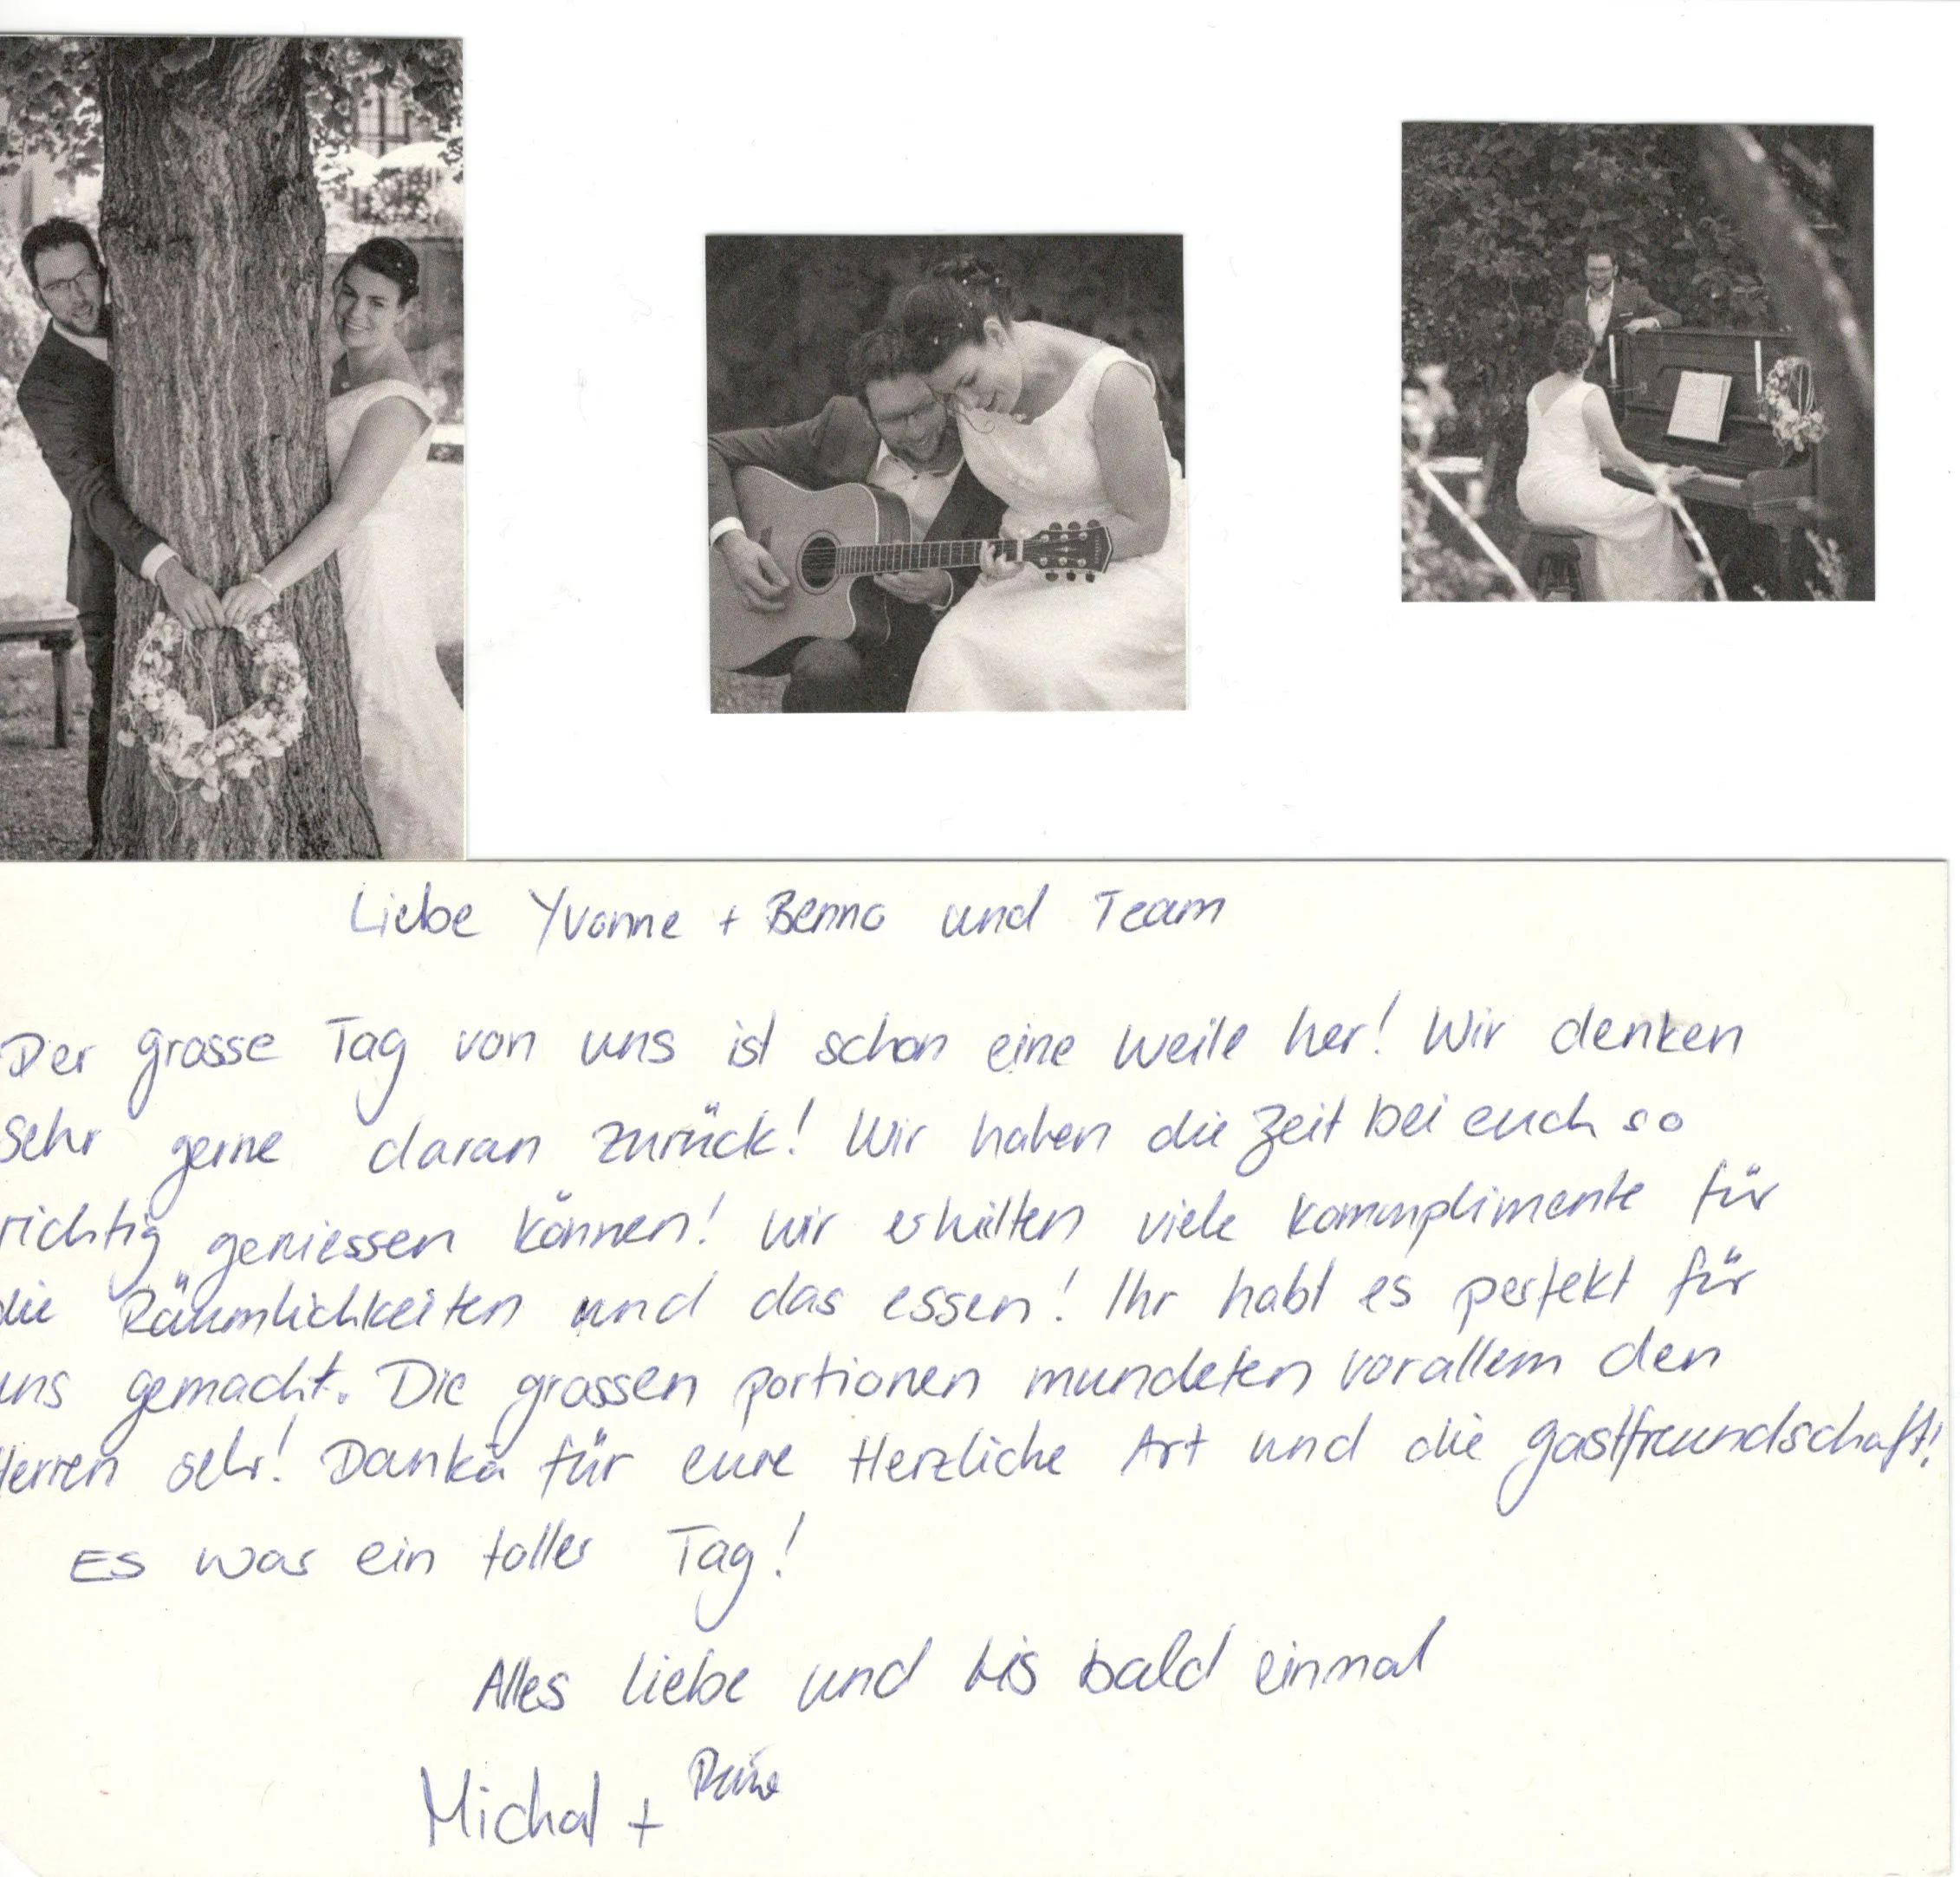 Liebe Yvonne + Benno und Team
Der grosse Tag von uns ist schon eine weile her! Wir denken
Sehr gerne daran zurück! Wir haben die Zeit bei euch so
richtig geniessen können! Wir erhilten viele kommplimente für
die Räumlichkeiten und das essen! Ihr habt es perfekt für
uns gemacht. Die grossen portionen mundeten vorallem den
Herren sehr! Dankä für eure Herzliche Art und die gastfreundschaft!
ES war ein toller Tag!
Alles liebe und bis bald einmal
Michal +